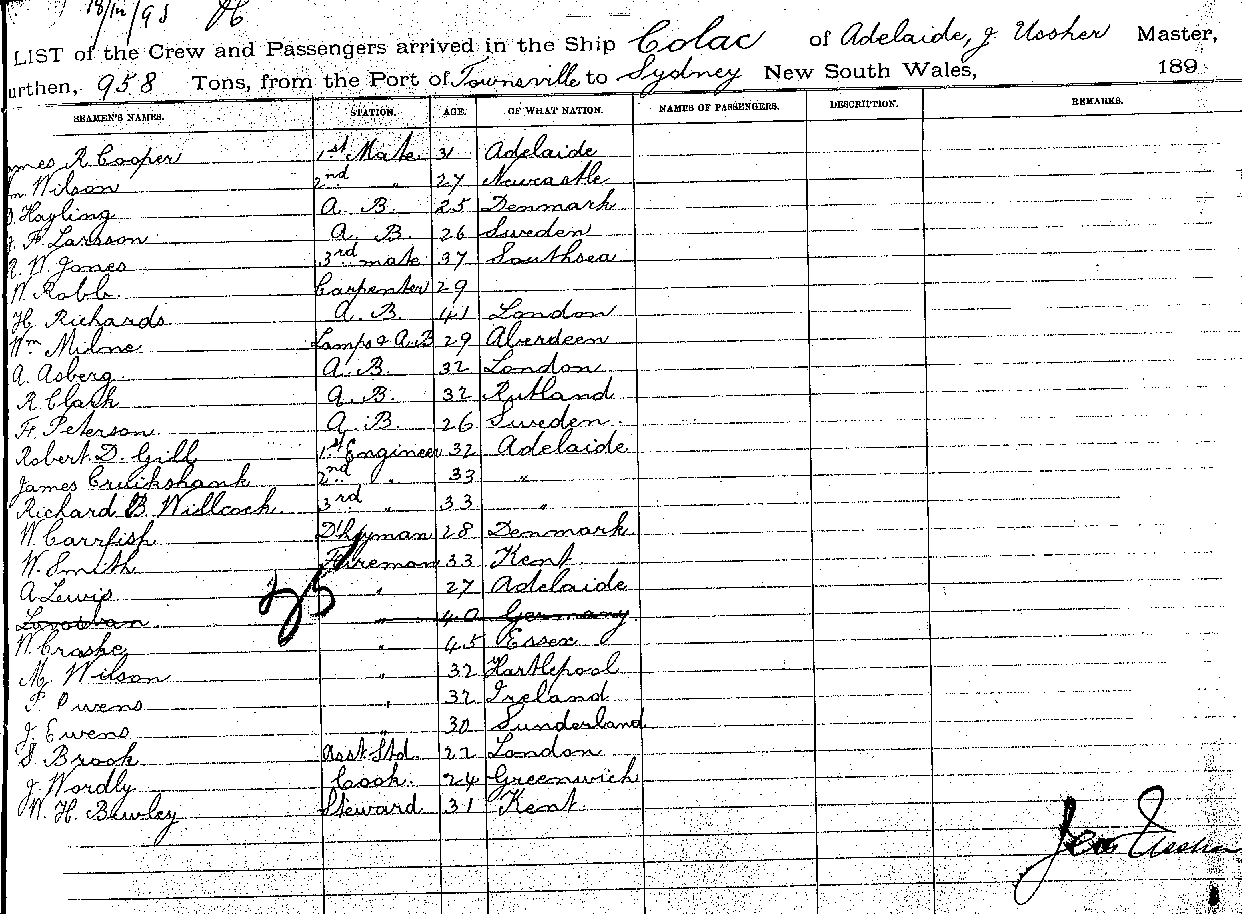 18/12/95
LIST of the Crew and Passengers arrived in the Ship Colac of Adelaide, J. Ussher Master,
urthen, 958 Tons, from the Port of Townsville to Sydney New South Wales, 189
SEAMEN'S NAMES. STATION. AGE. OF WHAT NATION. NAMES OF PASSENGERS. DESCRIPTION. REMARKS.
mes R Cooper 1st Mate 31 Adelaide
m Wilson 2nd " 27 Newcastle
Hagling A. B. 25 Denmark
F. Larsson A. B. 26 Sweden
W. Jones 3rd mate 37 Southsea
W. Robb Carpenter 29
H. Richards A. B. 41 London
Wm Milne Lamps & A.B 29 Aberdeen
A. Asberg A. B. 32 London
R Clark A. B. 32 Rutland
F. Peterson A. B. 26 Sweden
Robert D. Gill 1st Engineer 32 Adelaide
James Cruikshank 2nd " 33 "
Richard B Willcock 3rd " 33 "
W. Carrfish D'kyman 28 Denmark
W. Smith Fireman 33 Kent
A Lewis " 27 Adelaide
" 40 Germany
W. Craske " 45 Essex
M. Wilson " 32 Hartlepool
P Owens " 32 Ireland
J. Ewens " 30 Sunderland
S. Brook Asst Std. 22 London
J Wordly Cook. 24 Greenwich
W. H. Bewley Steward 31 Kent
25
Jas Ussher